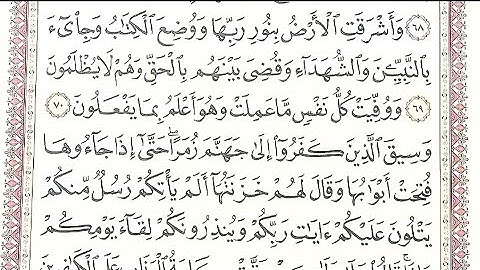 ٦٨ وَأَشْرَقَتِ ٱلْأَرْضُ بِنُورِ رَبِّهَا وَوُضِعَ ٱلْكِتَٰبُ وَجِا۟ىٓءَ
بِٱلنَّبِيِّـۧنَ وَٱلشُّهَدَآءِ وَقُضِىَ بَيْنَهُم بِٱلْحَقِّ وَهُمْ لَا يُظْلَمُونَ
٦٩ وَوُفِّيَتْ كُلُّ نَفْسٍ مَّا عَمِلَتْ وَهُوَ أَعْلَمُ بِمَا يَفْعَلُونَ ٧٠
وَسِيقَ ٱلَّذِينَ كَفَرُوٓا۟ إِلَىٰ جَهَنَّمَ زُمَرًا ۖ حَتَّىٰٓ إِذَا جَآءُوهَا
فُتِحَتْ أَبْوَٰبُهَا وَقَالَ لَهُمْ خَزَنَتُهَآ أَلَمْ يَأْتِكُمْ رُسُلٌ مِّنكُمْ
يَتْلُونَ عَلَيْكُمْ ءَايَٰتِ رَبِّكُمْ وَيُنذِرُونَكُمْ لِقَآءَ يَوْمِكُمْ